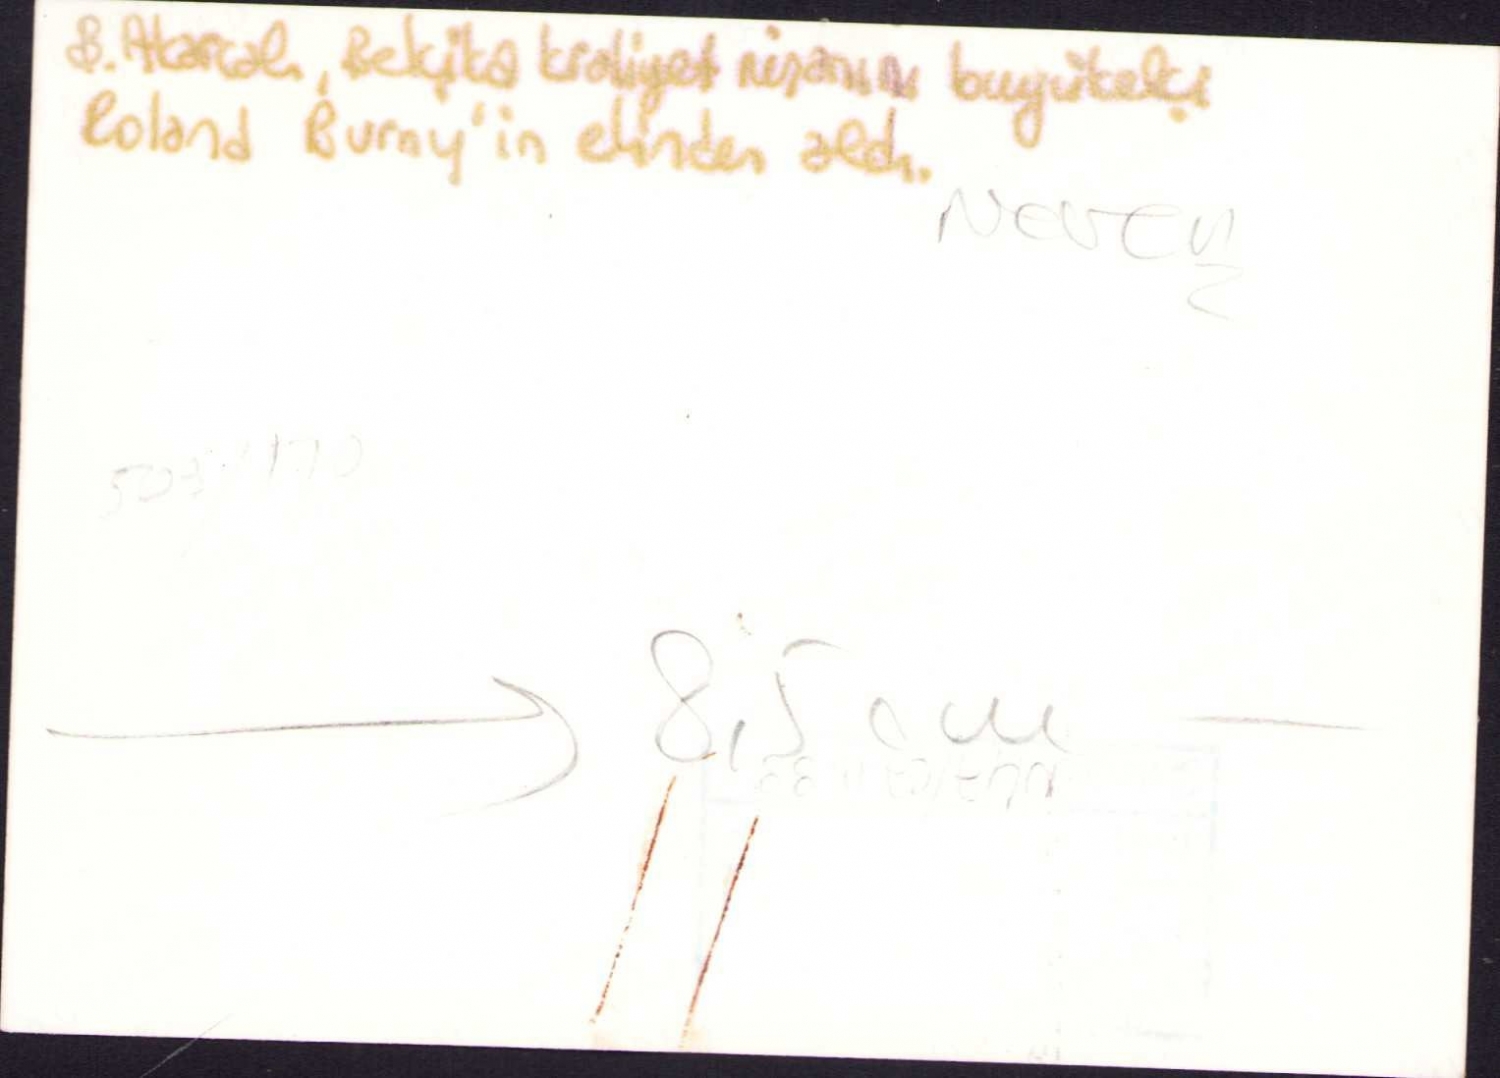 B. Atacalı, Belçika kraliyet nişanını büyükelçi
Roland Burny'in elinden aldı.
NEVEN
8,5 cm